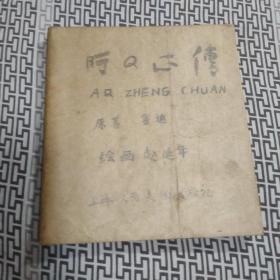 阿Q正傳
AQ ZHENG CHUAN
原著 鲁迅
绘画 赵延年
上海人民美术出版社